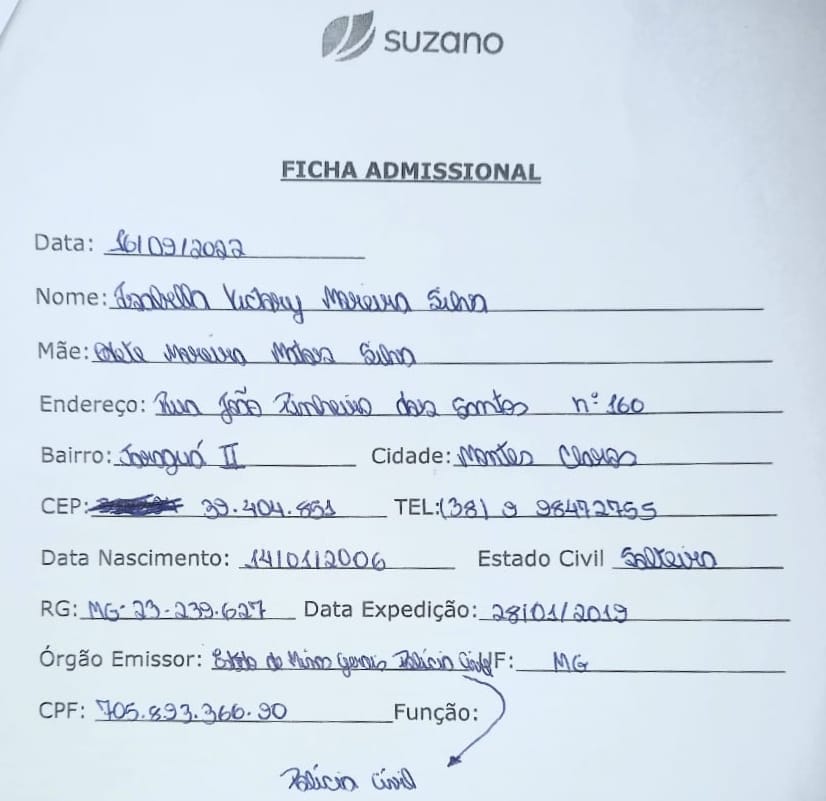 suzano
FICHA ADMISSIONAL
Data: 16/09/2022
Nome: Isabella Victory Moreira Silva
Mãe: Moreira Silva
Endereço: Rua João Pinheiro dos Santos nº 160
Bairro: Jaraguá II Cidade: Montes Claros
CEP: 39.404.851 TEL:(38) 9 98472755
Data Nascimento: 14/01/2006 Estado Civil Solteiro
RG: MG-23-239.627 Data Expedição: 28/01/2019
Órgão Emissor: Estado de Minas Gerais Polícia Civil UF: MG
CPF: 705.893.366.90 Função:
Polícia Civil